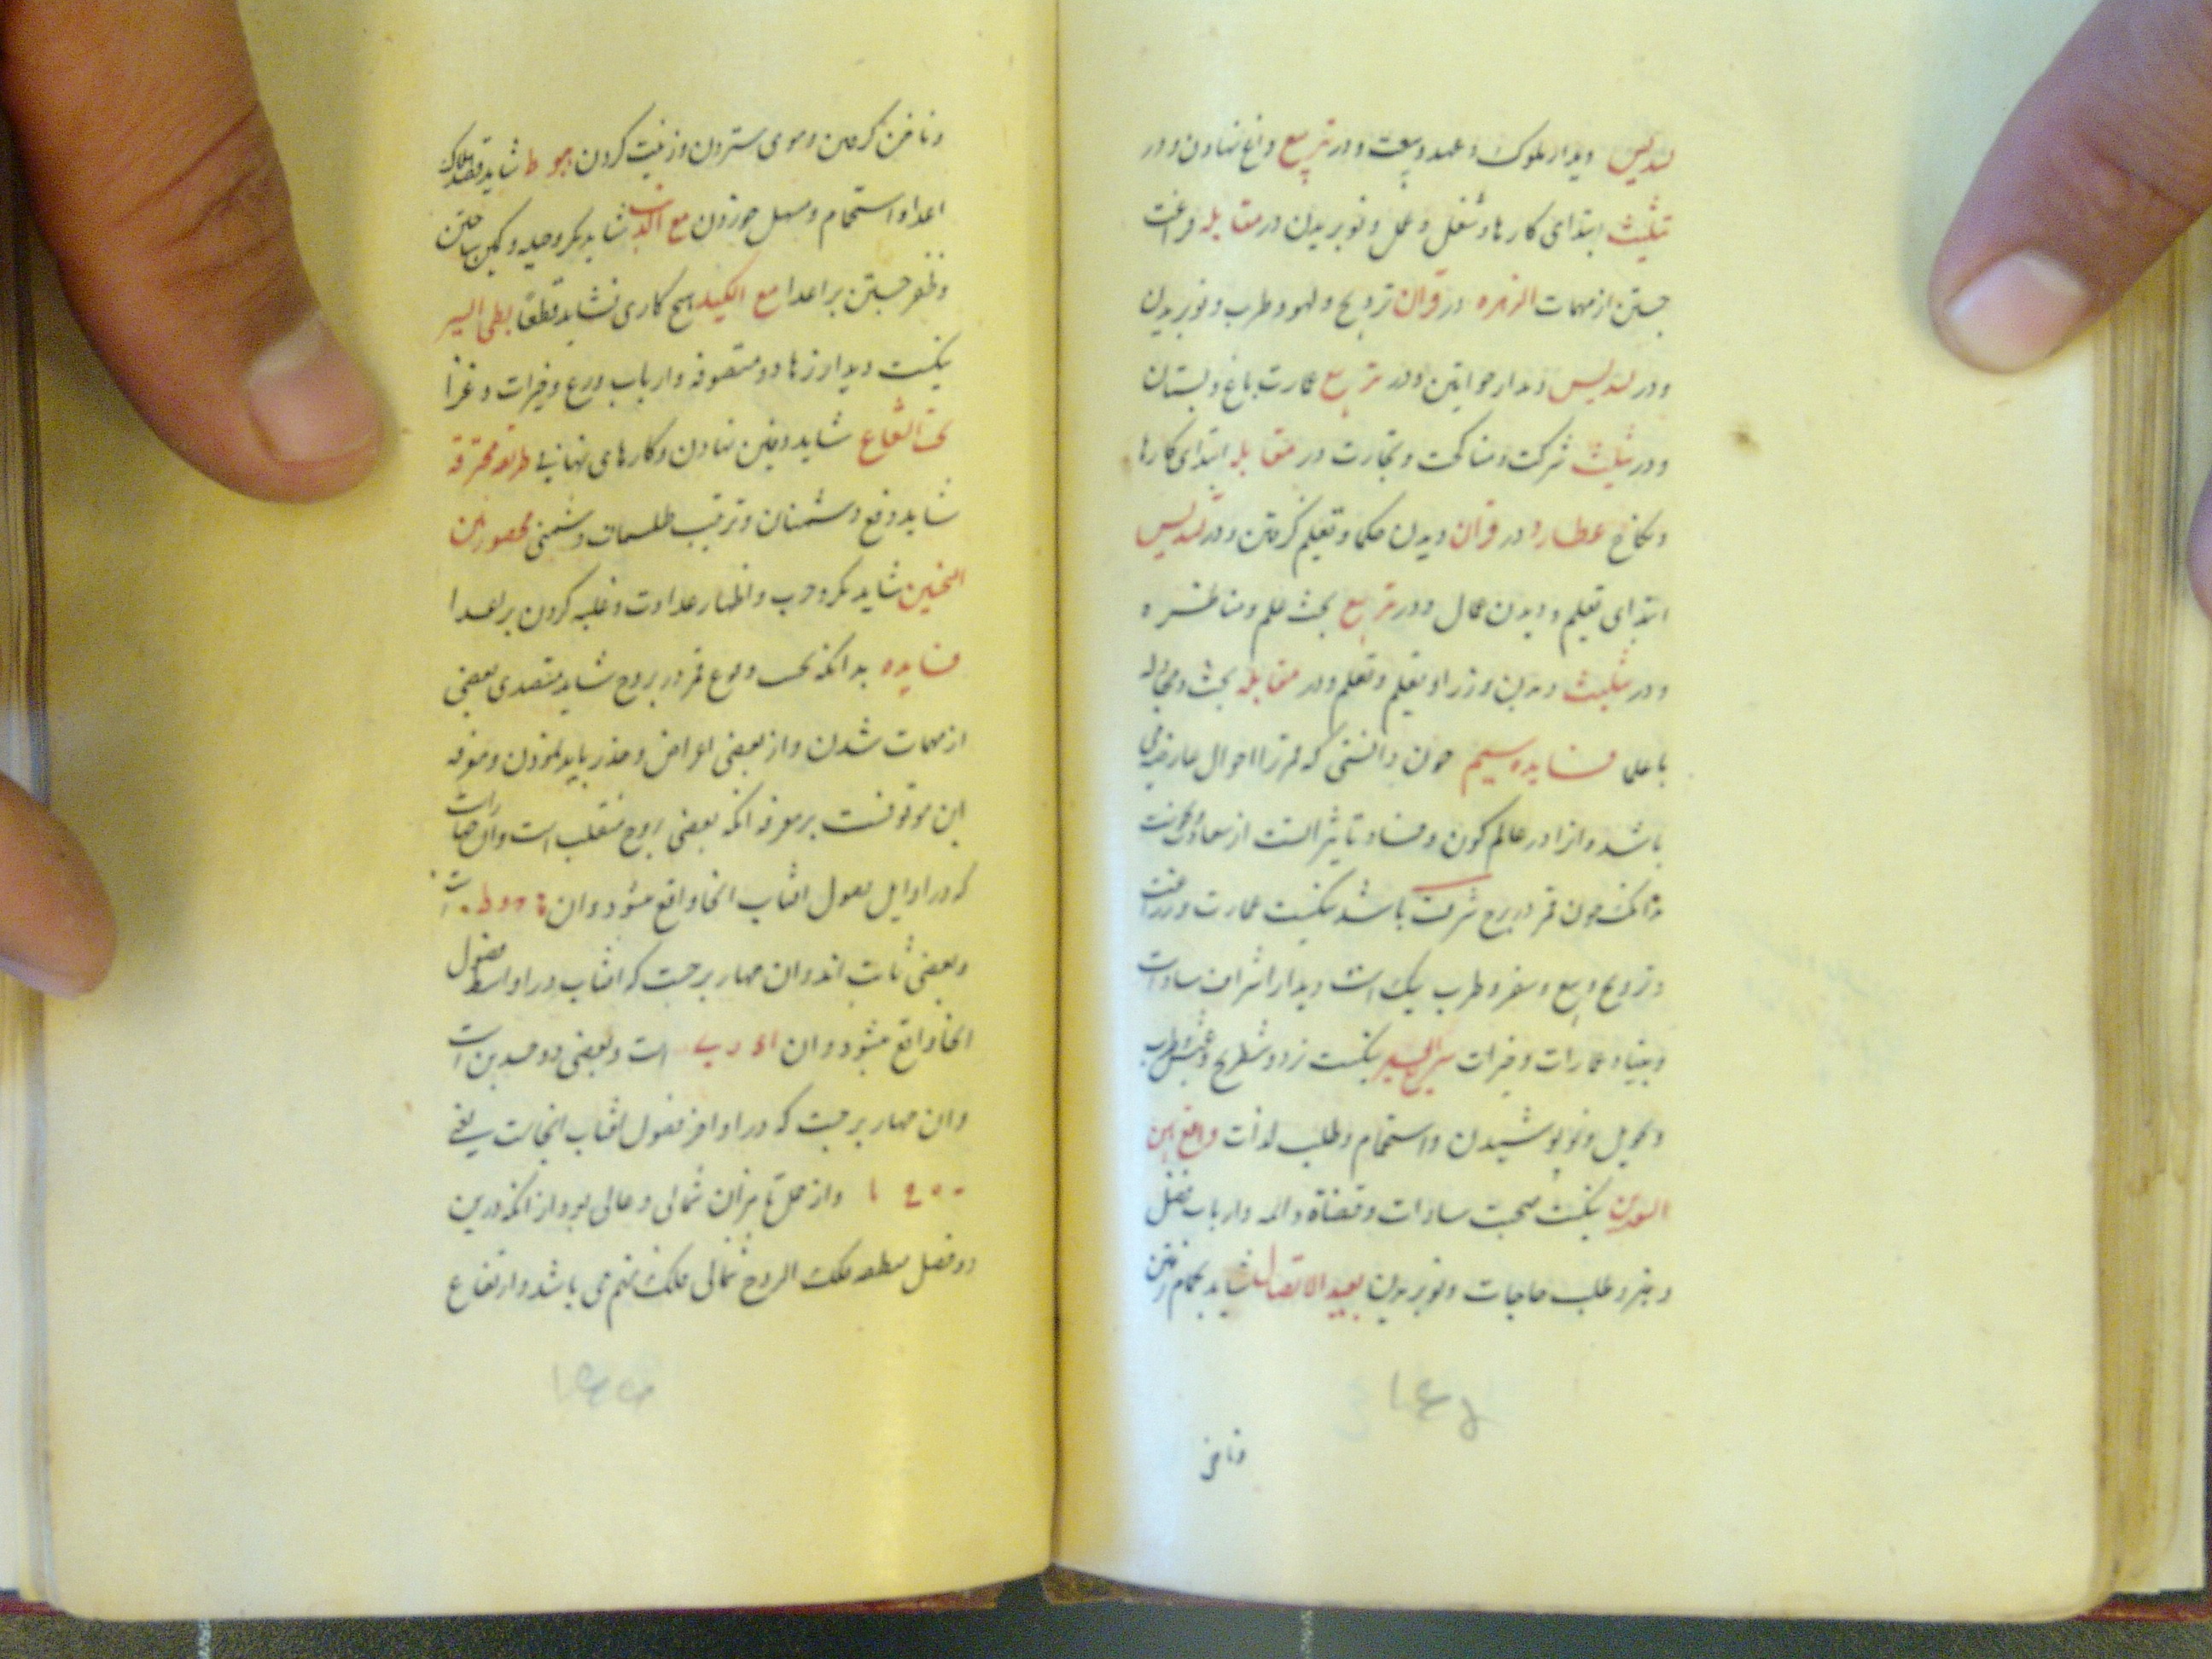 تسدیس دیدار ملوک و عهد و بیعت و در تربیع داغ نهادن و در
تثلیث ابتدای کارها و شغل و عمل و نو بریدن در مقابله فراغت
جستن از مهمات الزهره در قران تزویج و لهو و طرب و نو بریدن
و در تسدیس دیدار خواتین و در تربیع عمارت باغ و بستان
و در تثلیث شرکت و مناکحت و تجارت در مقابله ابتدای کارها
و نکاح عطارد در قران دیدن حکما و تعلیم گرفتن و در تسدیس
ابتدای تعلیم و دیدن عمال و در تربیع بحث علم و مناظره
و در تثلیث دیدن وزرا و تعلیم و تعلم و در مقابله بحث و مجادله
با علما فایده سیم چون دانستی که قمر را احوال عارض می
باشد و انرا در عالم کون و فساد تاثیر الست از سعادت و نحوست
چنانکه چون قمر در برج شرف باشد نیکست عمارت و زراعت
و تزویج و بیع و سفر و طرب نیک است دیدار اشراف سادات
و بنیاد عمارات و خیرات سریع السیر نیکست نرد و شطرنج و عیش و طرب
و تحویل و نو پوشیدن و استحمام و طلب لذات واقع بین
السعدین نیکست صحبت سادات و قضاة و ائمه و ارباب فضل
و هنر و طلب حاجات و نو بریدن بعید الاتصال شاید بحمام رفتن
۱۶۴
و ناخن
و ناخن گرفتن و موی ستردن و زینت کردن هبوط شاید قصد املاک
اعدا و استحمام و مسهل خوردن مع الذنب شاید مکر و حیله و کمین ساختن
و ظفر جستن بر اعدا مع الکید هیچ کاری نشاید قطعا بطی السیر
نیکست دیدار زهاد و متصوفه و ارباب ورع و خیرات و غزا
تحت الشعاع شاید دفین نهادن و کارهای نهانی طریقه محترقه
شاید دفع دشمنان و ترتیب طلسمات دشمنی محصور بین
النحسین شاید مکر و حرب و اظهار عداوت و غلبه کردن بر اعدا
فایده بدانکه بحسب وقوع قمر در بروج شاید متصدی بعضی
از مهمات شدن و از بعضی اعراض و حذر باید نمودن و معرفه
این موقوفست بر معرفه انکه بعضی بروج منقلب است و ان چهار است
که در اوایل فصول افتاب انجا واقع میشود و ان ط است
و بعضی ثابت اند و ان چهار برجست که افتاب در اواسط فصول
انجا واقع میشود و ان است و بعضی ذو جسدین است
و ان چهار برجست که در اواخر فصول افتاب انجاست یعنی
و از حمل تا میزان شمالی و عالی بود از انکه درین
دو فصل منطقه فلک البروج شمالی فلک نهم می باشد و ارتفاع